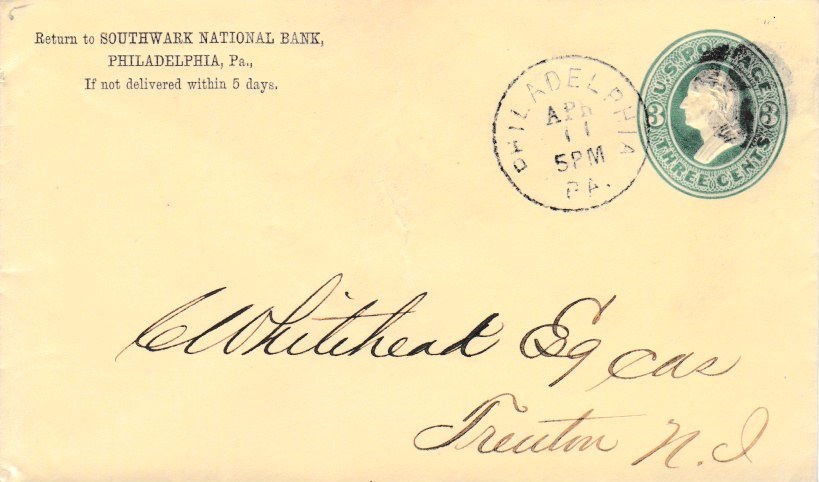 Return to SOUTHWARK NATIONAL BANK,
PHILADELPHIA, Pa.,
If not delivered within 5 days.
PHILADELPHIA
APR
11
5PM
PA.
U.S. POSTAGE
3 3
THREE CENTS
C Whitehead Esq cas
Trenton N. J